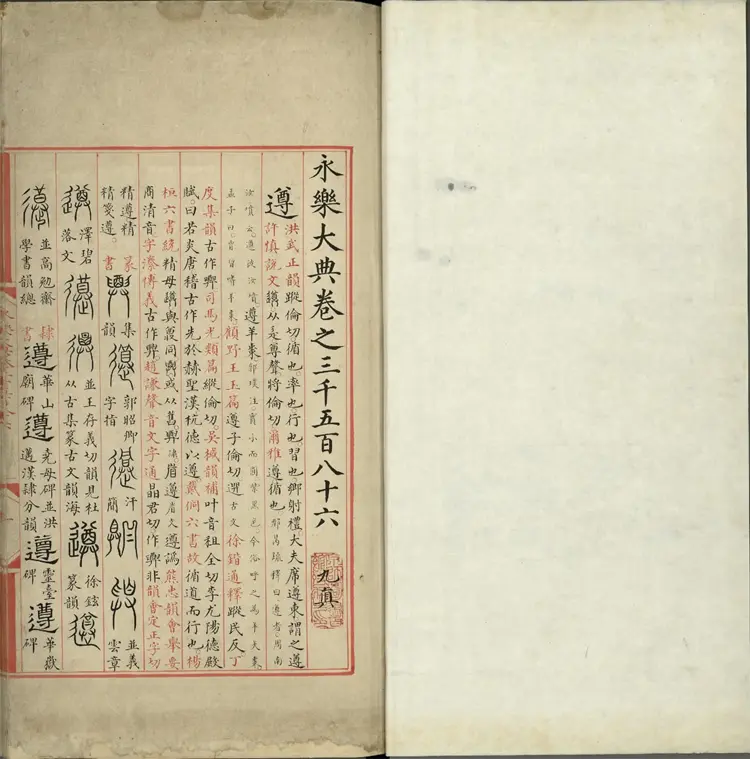 永樂大典卷之三千五百八十六 九真
遵 洪武正韻蹤倫切循也。率也。行也。習也。鄉射禮大夫席遵東謂之遵
許慎說文从辵尊聲將倫切爾雅遵循也邢昺疏釋曰遵者周南
汝墳云遵彼汝墳遵羊棗郭璞注實小而圓紫黑色今俗呼之為羊矢棗
孟子曰曾皙嗜羊棗顧野王玉篇遵子倫切古文徐鍇通釋蹤民反丁
度集韻古作司馬光類篇縱倫切吳棫韻補叶音租全切李尤陽德殿
賦曰若炎唐稽古作先於赫聖漢抗德以遵戴侗六書故循道而行也楊
桓六書統精母與同或从舊遵遵譌熊忠韻會舉要
商清音字潫博義古作趙謙聲音文字通晶君切作非韻會定正字切
精遵精
精箋遵。篆書 集韻 郭昭卿字指 汗簡 並義雲章
遵 澤碧落文 並王存義切韻見杜从古集篆古文韻海 徐鉉篆韻
並高勉齋學書韻總 隸書 遵 華山廟碑 遵 堯母碑並洪邁漢隸分韻 遵 靈臺碑 遵 華嶽碑